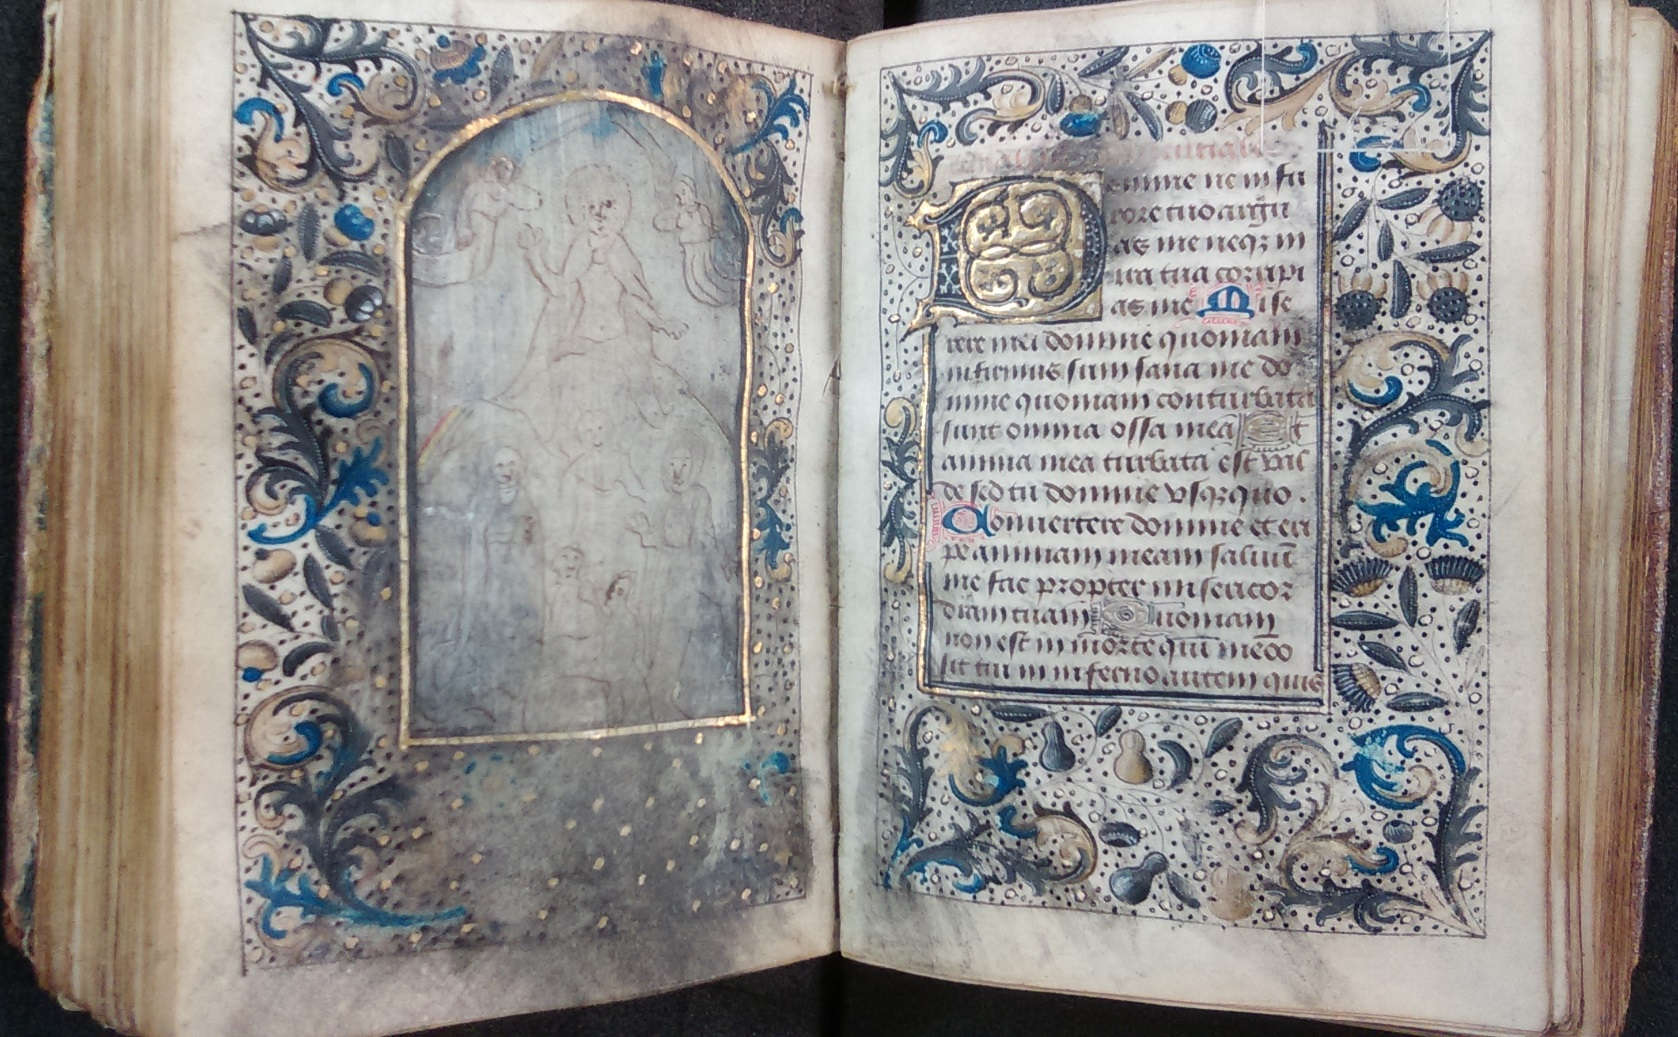 omine ne in fu
rore tuo argu
as me neqz in
ira tua corripi
as me Mise
rere mei domine quoniam
infirmus sum sana me do
mine quoniam conturbata
sunt omnia ossa mea Et
anima mea turbata est val
de sed tu domine vsqzquo .
Conuertere domine et eri
pe animam meam saluū
me fac propter misericor
diam tuam Quoniam
non est in morte qui meōo
sit tui in inferno autem quis